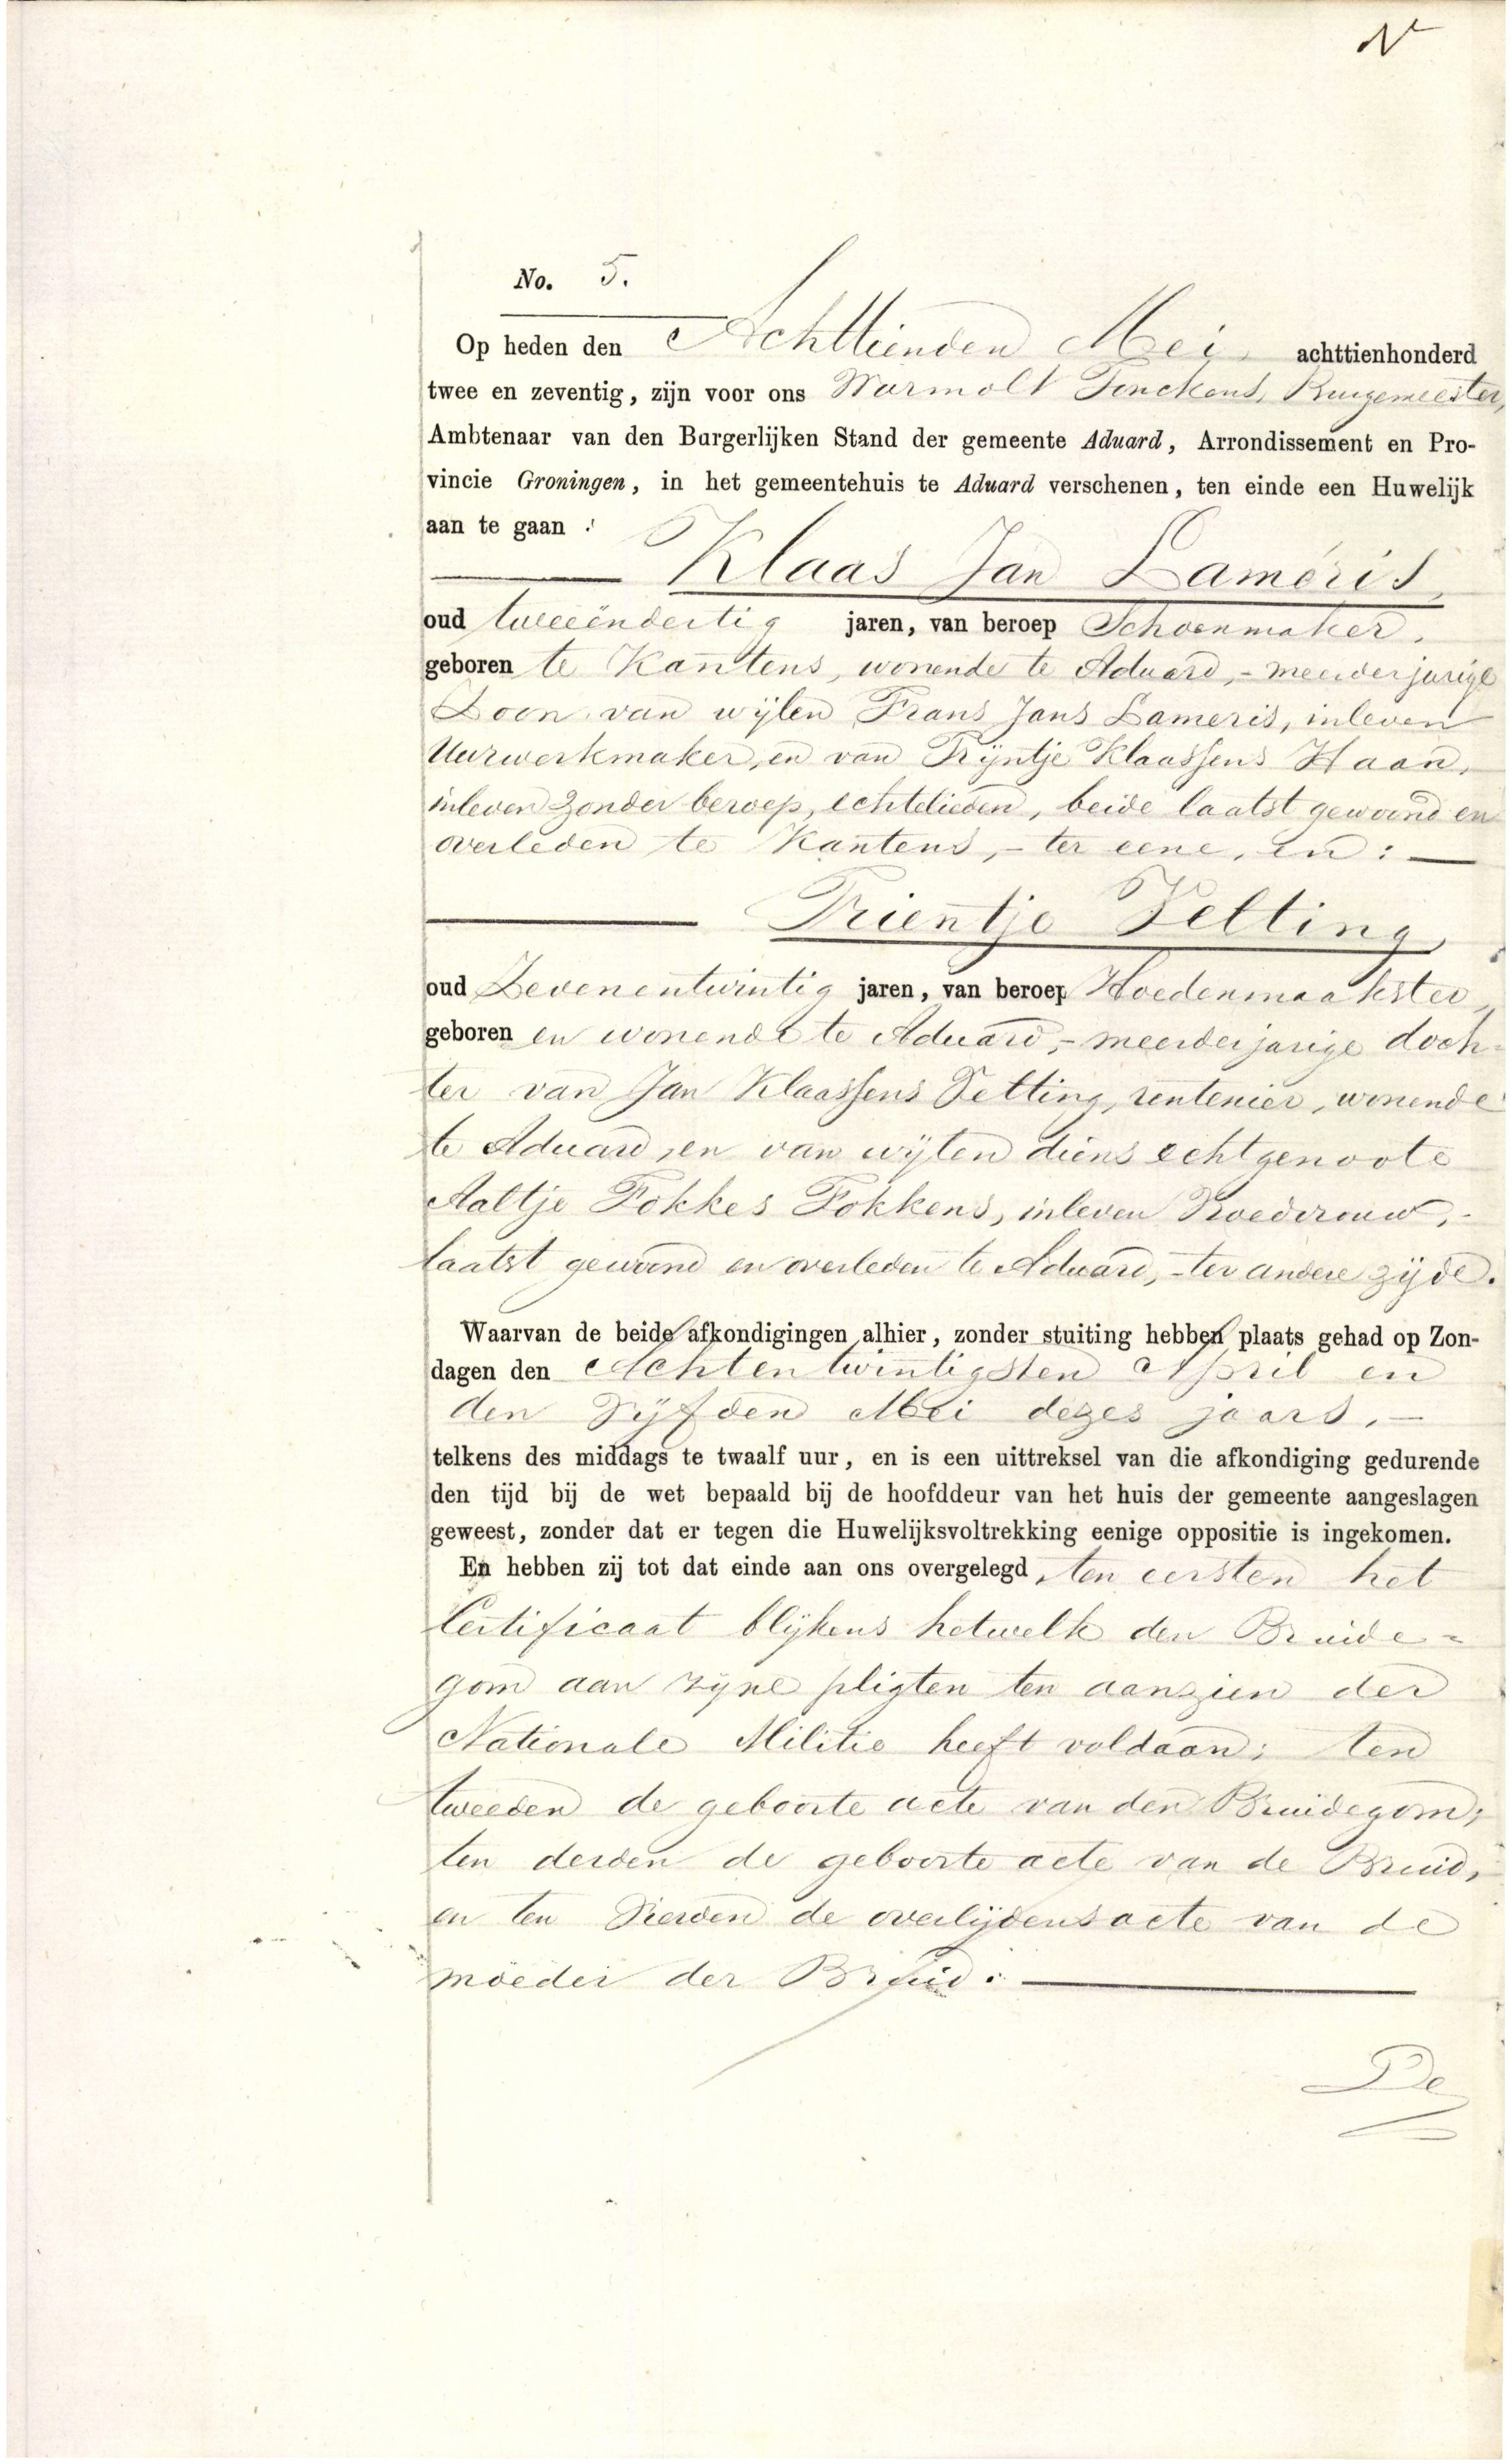 No. 5.
Op heden den Achttienden Mei achttienhonderd
twee en zeventig, zijn voor ons Warmolt Tonckens, Burgemeester,
Ambtenaar van den Burgerlijken Stand der gemeente Aduard, Arrondissement en Pro-
vincie Groningen, in het gemeentehuis te Aduard verschenen, ten einde een Huwelijk
aan te gaan:
Klaas Jan Lameris,
oud tweeëndertig jaren, van beroep Schoenmaker,
geboren te Kantens, wonende te Aduard, - meerderjarige
Zoon van wijlen Frans Jans Lameris, inleven
Uurwerkmaker, en van Trijntje Klaassens Haan,
inleven zonder beroep, echtelieden, beide laatst gewoond en
overleden te Kantens, - ter eene, en:
Trientje Velting,
oud Zevenentwintig jaren, van beroep Hoedenmaakster,
geboren en wonende te Aduard, - meerderjarige doch-
ter van Jan Klaassens Velting, rentenier, wonende
te Aduard, en van wijlen diens echtgenoote
Aaltje Fokkes Fokkens, inleven Vroedvrouw,
laatst gewoond en overleden te Aduard, - ter andere zijde.
Waarvan de beide afkondigingen alhier, zonder stuiting hebben plaats gehad op Zon-
dagen den Achtentwintigsten April en
den Vijfden Mei dezes jaars, -
telkens des middags te twaalf uur, en is een uittreksel van die afkondiging gedurende
den tijd bij de wet bepaald bij de hoofddeur van het huis der gemeente aangeslagen
geweest, zonder dat er tegen die Huwelijksvoltrekking eenige oppositie is ingekomen.
En hebben zij tot dat einde aan ons overgelegd, ten eersten het
Certificaat blijkens hetwelk den Bruide-
gom aan zijne pligten ten aanzien der
Nationale Militie heeft voldaan; ten
tweeden de geboorte acte van den Bruidegom;
ten derden de geboorte acte van de Bruid,
en ten Vierden de overlijdensacte van de
moeder der Bruid.
De